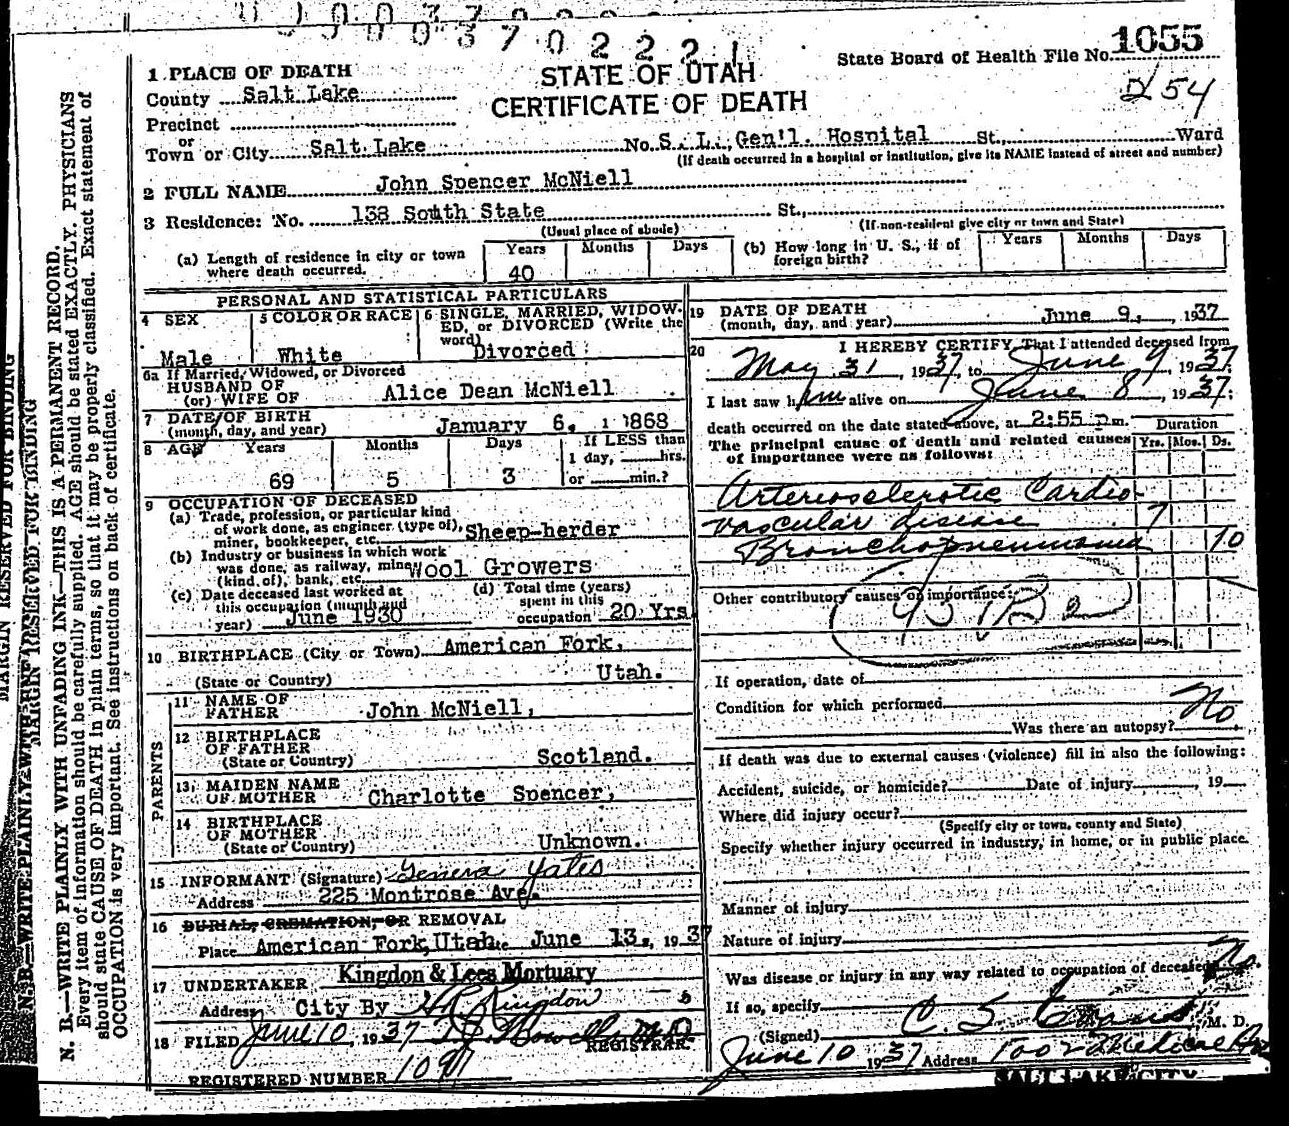 00370221
State Board of Health File No. 1055
254
STATE OF UTAH
CERTIFICATE OF DEATH
1 PLACE OF DEATH
County Salt Lake
Precinct
or
Town or City Salt Lake No. S. L. Gen'l. Hospital St., Ward
(If death occurred in a hospital or institution, give its NAME instead of street and number)
2 FULL NAME John Spencer McNiell
3 Residence: No. 138 South State St.,
(Usual place of abode) (If non-resident give city or town and State)
(a) Length of residence in city or town where death occurred. Years 40 Months Days
(b) How long in U. S., if of foreign birth? Years Months Days
PERSONAL AND STATISTICAL PARTICULARS
4 SEX Male
5 COLOR OR RACE White
6 SINGLE, MARRIED, WIDOWED, or DIVORCED (Write the word) Divorced
6a If Married, Widowed, or Divorced
HUSBAND OF
(or) WIFE OF Alice Dean McNiell
7 DATE OF BIRTH
(month, day, and year) January 6, 1868
8 AGE Years 69 Months 5 Days 3
If LESS than
1 day, hrs.
or min.?
9 OCCUPATION OF DECEASED
(a) Trade, profession, or particular kind
of work done, as engineer (type of),
miner, bookkeeper, etc. Sheep-herder
(b) Industry or business in which work
was done, as railway, mine
(kind of), bank, etc. Wool Growers
(c) Date deceased last worked at
this occupation (month and
year) June 1930
(d) Total time (years)
spent in this
occupation 20 Yrs
10 BIRTHPLACE (City or Town) American Fork,
(State or Country) Utah.
PARENTS
11 NAME OF
FATHER John McNiell,
12 BIRTHPLACE
OF FATHER
(State or Country) Scotland.
13 MAIDEN NAME
OF MOTHER Charlotte Spencer,
14 BIRTHPLACE
OF MOTHER
(State or Country) Unknown.
15 INFORMANT (Signature) Geneva Yates
Address 225 Montrose Ave.
16 BURIAL, CREMATION, OR REMOVAL
Place American Fork, Utah. June 13, 1937
17 UNDERTAKER Kingdon & Lees Mortuary
Address City By Kingdon
18 FILED June 10, 1937 M D
REGISTRAR.
REGISTERED NUMBER 1097
19 DATE OF DEATH
(month, day, and year) June 9, 1937
20 I HEREBY CERTIFY, That I attended deceased from
May 31, 1937, to June 9, 1937;
I last saw him alive on June 8, 1937;
death occurred on the date stated above, at 2:55 pm.
The principal cause of death and related causes
of importance were as follows:
Duration
Yrs. Mos. Ds.
Arteriosclerotic Cardio
vascular disease 7
Bronchopneumonia 10
Other contributory causes of importance:
If operation, date of
Condition for which performed
Was there an autopsy? No
If death was due to external causes (violence) fill in also the following:
Accident, suicide, or homicide? Date of injury , 19
Where did injury occur?
(Specify city or town, county and State)
Specify whether injury occurred in industry, in home, or in public place.
Manner of injury
Nature of injury
Was disease or injury in any way related to occupation of deceased? No.
If so, specify
(Signed) C. S. M. D.
June 10 1937 Address
SALT LAKE CITY
MARGIN RESERVED FOR BINDING
N. B.—WRITE PLAINLY WITH UNFADING INK—THIS IS A PERMANENT RECORD.
Every item of information should be carefully supplied. AGE should be stated EXACTLY. PHYSICIANS
should state CAUSE OF DEATH in plain terms, so that it may be properly classified. Exact statement of
OCCUPATION is very important. See instructions on back of certificate.